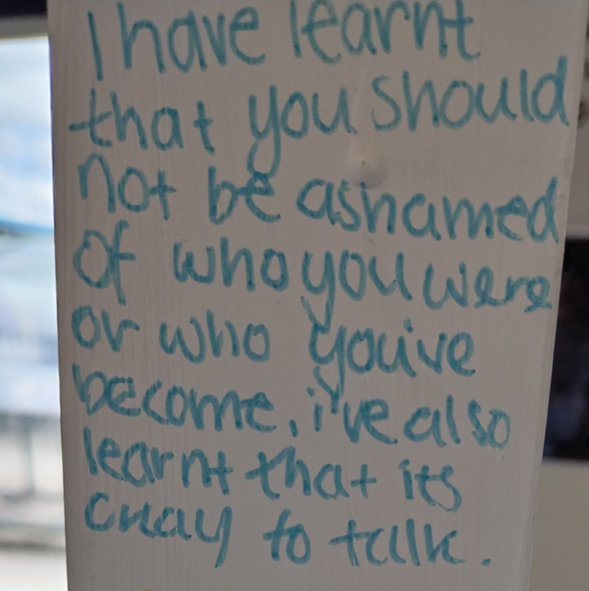 I have learnt
that you should
not be ashamed
of who you were
or who you've
become, i've also
learnt that its
okay to talk.